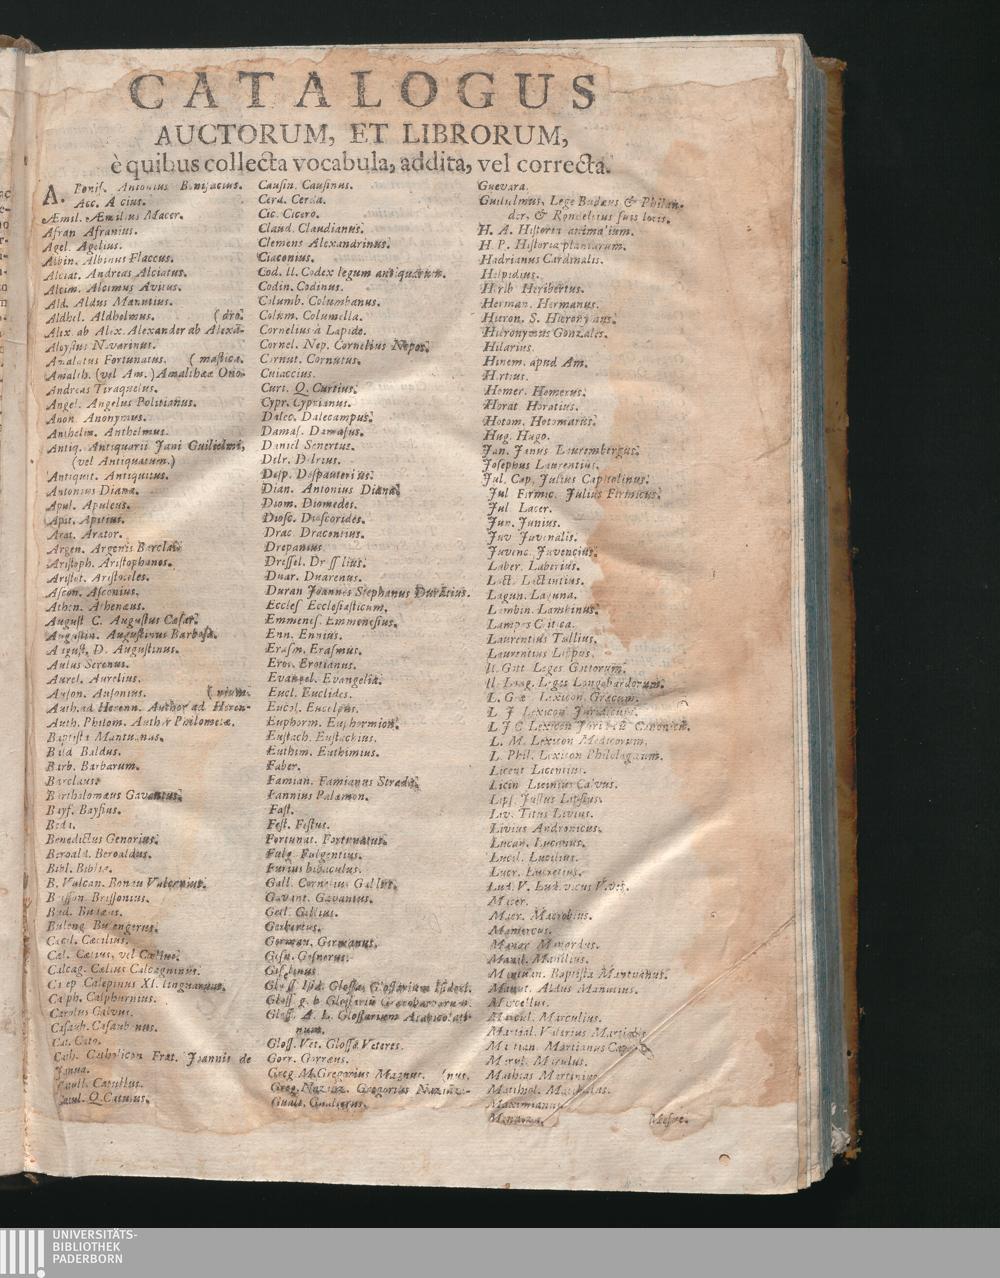 CATALOGUS
AUCTORUM, ET LIBRORUM,
è quibus collecta vocabula, addita, vel correcta.
A. Bonif. Antonius Bonifacius.
Acc. Accius.
Æmil. Æmilius Macer.
Afran. Afranius.
Agel. Agelius.
Albin. Albinus Flaccus.
Alciat. Andreas Alciatus.
Alcim. Alcimus Avitus.
Ald. Aldus Manutius.
Aldhel. Aldhelmus. (dro.
Alex. ab Alex. Alexander ab Alexā-
Aloysius Navarinus.
Amalatus Fortunatus. (mastica.
Amalth. (vel Am.) Amaltheæ Ono-
Andreas Tiraquelus.
Angel. Angelus Politianus.
Anon. Anonymus.
Anthelm. Anthelmus.
Antiq. Antiquarii Jani Guilielmi,
(vel Antiquarum.)
Antiquit. Antiquitus.
Antonius Diana.
Apul. Apuleus.
Apit. Apitius.
Arat. Arator.
Argen. Argenis Barclaii.
Aristoph. Aristophanes.
Aristot. Aristoteles.
Ascon. Asconius.
Athen. Athenæus.
August. C. Augustus Cæsar.
Augustin. Augustinus Barbosa.
August. D. Augustinus.
Aulus Serenus.
Aurel. Aurelius.
Auson. Ausonius. (nium.
Auth. ad Herenn. Author ad Heren-
Auth. Philom. Author Philomelæ.
Baptista Mantuanus.
Bald. Baldus.
Barb. Barbarum.
Barclaius
Bartholomæus Gavantus.
Bayf. Bayfius.
Beda.
Benedictus Genorius.
Beroald. Beroaldus.
Bibl. Biblia.
B. Vulcan. Bonau Vulcanius.
Brisson. Brissonius.
Bud. Budæus.
Buleng. Bulengerus.
Cæcil. Cæcilius.
Cæl. Cælius, vel Cœlius.
Calcag. Cælius Calcagninus.
Calep. Calepinus XI. linguarum.
Calph. Calphurnius.
Carolus Galvus.
Casaub. Casaubonus.
Cat. Cato.
Cath. Catholicon Frat. Joannis de
Janua.
Catull. Catullus.
Catul. Q. Catulus.
Causin. Causinus.
Cerd. Cerda.
Cic. Cicero.
Claud. Claudianus.
Clemens Alexandrinus.
Ciaconius.
Cod. ll. Codex legum antiquarum.
Codin. Codinus.
Columb. Columbanus.
Colum. Columella.
Cornelius à Lapide.
Cornel. Nep. Cornelius Nepos.
Cornut. Cornutus.
Cuiaccius.
Curt. Q. Curtius.
Cypr. Cyprianus.
Dalec. Dalecampus.
Damas. Damasus.
Daniel Senertus.
Delr. Delrius.
Desp. Despauterius.
Dian. Antonius Diana.
Diom. Diomedes.
Diosc. Dioscorides.
Drac. Draconius.
Drepanius
Dressel. Dresselius.
Duar. Duarenus.
Duran Joannes Stephanus Durātius.
Eccles Ecclesiasticum.
Emmenes. Emmenesius.
Enn. Ennius.
Erasm. Erasmus.
Erot. Erotianus.
Evangel. Evangelia.
Eucl. Euclides.
Eucol. Eucolpus.
Euphorm. Euphormion.
Eustach. Eustachius.
Euthim. Euthimius.
Faber.
Famian. Famianus Strada.
Fannius Palæmon.
Fast.
Fest. Festus.
Fortunat. Fortunatus.
Fulg. Fulgentius.
Furius bibaculus.
Gall. Cornelius Gallus.
Gavant. Gavantus.
Gell. Gellius.
Gerbertus.
German. Germanus.
Gesn. Gesnerus.
Giselinus
Gloss. Isid. Glossæ, Glossarium Isidori.
Gloss. g. b. Glossarium Græcobarbarum.
Gloss. A. L. Glossarium Arabicolati-
num.
Gloss. Vet. Glossæ Veteres.
Gorr. Gorræus.
Greg. M. Gregorius Magnus. (nus.
Greg. Nazianz. Gregorius Nazianz-
Gualt. Gualterus.
Guevara.
Guilielmus, Lege Budæus & Philan-
der, & Rondeletius suis locis.
H. A. Historia animalium.
H. P. Historia plantarum.
Hadrianus Cardinalis.
Helpidius.
Herib Heribertus.
Herman. Hermanus.
Hieron. S. Hieronymus.
Hieronymus Gonzales.
Hilarius.
Hincm. apud Am.
Hirtius.
Homer. Homerus.
Horat Horatius.
Hotom. Hotomanus.
Hug. Hugo.
Jan. Janus Laurembergus.
Josephus Laurentius.
Jul. Cap. Julius Capitolinus.
Jul Firmic. Julius Firmicus.
Jul Lacer.
Jun. Junius.
Juv Juvenalis.
Juvenc. Juvencius.
Laber. Laberius.
Lact. Lactantius.
Lagun. Laguna.
Lambin. Lambinus.
Lampas Critica.
Laurentius Tullius.
Laurentius Lippus.
ll. Gott Leges Gottorum.
ll. Long. Leges Longobardorum.
L. Græ Lexicon Græcum.
L J Lexicon Juridicum.
L J C Lexicon Juridicū Canonicū.
L. M. Lexicon Medicorum.
L. Phil. Lexicon Philologicum.
Licent Licentius.
Licin Licinius Calvus.
Lips. Justus Lipsius.
Liv. Titus Livius.
Livius Andronicus.
Lucan. Lucanus.
Lucil. Lucilius.
Lucr. Lucretius.
Lud. V. Ludovicus Vives.
Macer.
Macr. Macrobius.
Mamercus.
Manil. Manilius.
Mantuan. Baptista Mantuanus.
Manut. Aldus Manutius.
Marcellus.
Marcul. Marculius.
Martial. Valerius Martialis
Martian. Martianus Cap
Marul. Marulus.
Mathias Martinius.
Matthiol. Matthiolus.
Maximianus.
UNIVERSITÄTS-
BIBLIOTHEK
PADERBORN